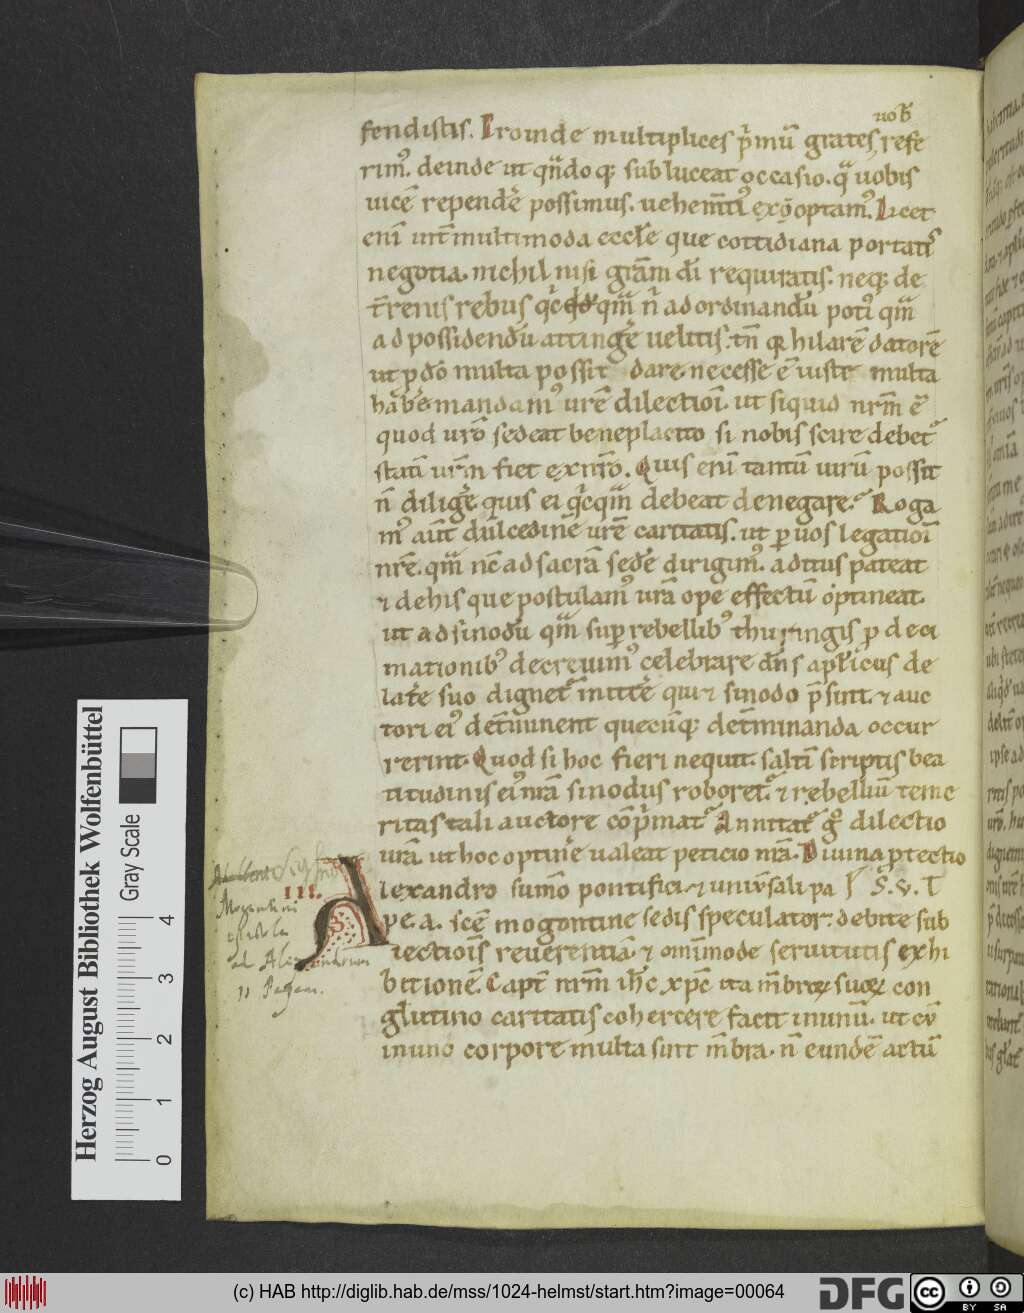 uob̄
fendistis. Proinde multiplices p̍mū grates refe
rim᷒. deinde ut qn̄do q; subluceat occasio. qͣ uobis
uicē repende̍ possimus. uehem̄ti᷒ exoptam᷒. Licet
enī um̄ multimoda eccl̄e que cottidiana portatis
negotia. nichil nisi grām dī requiratis. neq; de
t̄renis rebus qͥcqͣm n̄ ad ordinandū poti᷒ qͣm
ad possidendū attinge̍ uelitis. tn̄ qͥ hilarē datorē
ut ꝑdō multa possit dare necesse ē iuste multa
habe̍ mandam᷒ urē dilectioī. ut siquid nrm̄ ē
quod urō sedeat beneplacito si nobis scire debet᷒
statī urm̄ fiet ex nrō. Quis enī tantū uirū possit
n̄ dilige̍ quis ei qͥcqͣm debeat denegare. Roga
m᷒ aut̄ dulcedinē urē caritatis. ut ꝑ uos legatioī
nrē. qͣm nc̄ ad sacrā sedē dirigim᷒. aditus pateat
⁊ de his que postulam᷒ urā ope effectū optineat.
ut ad sinodū qͣm suꝑ rebellib᷒ thuringis ꝓ deci
mationib᷒ decreuim᷒ celebrare dn̄s apl̄icus de
late̍ suo dignet᷒ mitte̍ qui ⁊ sinodo p̄sint. ⁊ auc
tori ei᷒ det̄minent quecūq; det̄minanda occur
rerint. Quod si hoc fieri nequit. saltī scriptis bea
titudinis ei᷒ nrā sinodus roboret᷒. ⁊ rebelliū teme
ritas tali auctore cōp̍mat᷒. Annitat᷒ gͦ dilectio
urā. ut hoc optine̍ ualeat peticio nrā. Diuina ꝓtectio
III.
Alexandro sumo pontifici. ⁊ uniu̍sali pa S. v. T
pe. a. scē mogontine sedis speculator. debite sub
iectiois reuerentiā. ⁊ omīmode seruitutis exhi
bitionē. Capt̄ nrm̄ ih̄c xp̄c ita m̄broꝝ suoꝝ con
glutino caritatis cohercere facit in unū. ut cū
in uno corpore multa sint m̄bra. n̄ eundē actū
Moguntini
epistola
ad Alexandrum
II Papam.
Herzog August Bibliothek Wolfenbüttel
Gray Scale
0 1 2 3 4
(c) HAB http://diglib.hab.de/mss/1024-helmst/start.htm?image=00064
DFG
cc BY SA